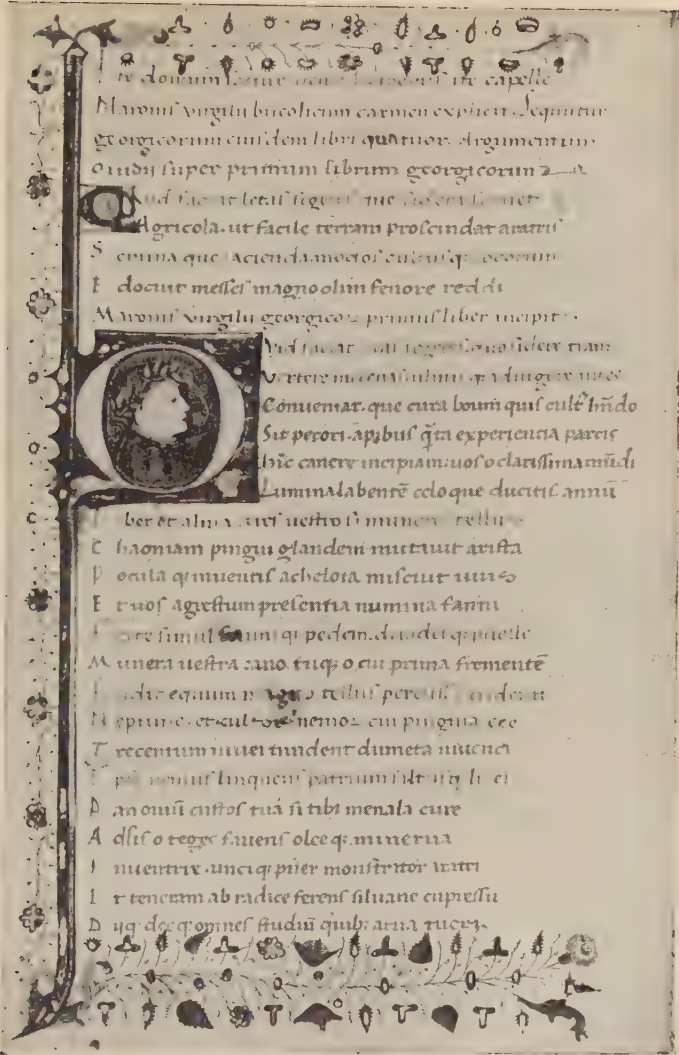 te domum ite capelle
Maronis virgilii bucolicum carmen explicit. Sequuntur
georgicorum eiusdem libri quatuor. Argumentum
ouidij super primum librum georgicorum
Quid faciat letas segetes que sidera seruet
Agricola. ut facile terram proscindat aratris
Semina que iacienda modos cultusq; locorum
Et docuit messes magno olim fenore reddi
Maronis virgilii georgicoꝝ primus liber incipit.
Qvid faciat letas segetes quo sidere
Vertere
Conueniat. que cura boum quis cultꝰ hñdo
Sit pecori. apibus q̃ta experiencia parcis
hĩc canere incipiam. uos o clarissima mũdi
Lumina labentẽ celo que ducitis annũ
Liber et alma ceres uestro si munere tellus
Chaoniam pingui glandem mutauit arista
Pocula q; inuentis acheloia miscuit uuis
Et uos agrestum presentia numina fauni
Ferte simul fauni q; pedem. driades q; puelle
Munera uestra cano. tuq; o cui prima frementẽ
Fudit equum magno tellus percussa tridenti
Neptune. et cultor nemoꝝ cui pinguia cee
Trecentum niuei tundent dumeta iuuenci
Ipse nemus linquens patrium saltusq;
Pan ouiũ custos tua si tibi menala cure
Adsis o tegee fauens oleeq; minerua
Inuentrix. unciq; puer monstrator aratri
Et teneram ab radice ferens siluane cupressũ
Dijq; deeq; omnes studiũ quibꝰ arua tueri.